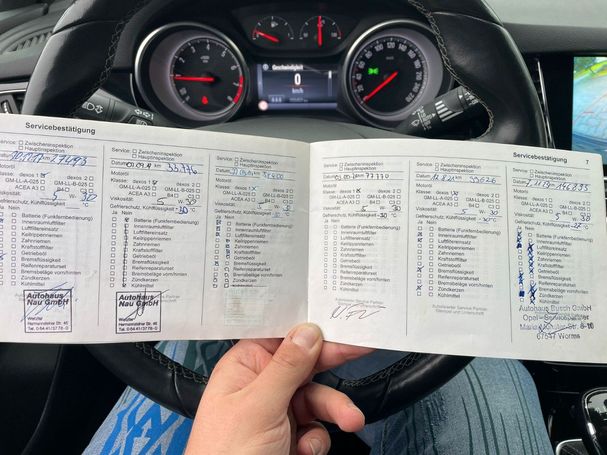 Geschwindigkeit
0
km/h
Servicebestätigung
Servicebestätigung 7
Service: Zwischeninspektion
Hauptinspektion
Datum
Motoröl
Klasse: dexos 1 dexos 2
GM-LL-A-025 GM-LL-B-025
ACEA A3 B4 C
Viskosität: 5 W 30
Gefrierschutz, Kühlflüssigkeit -30 °C
Ja Nein
Batterie (Funkfernbedienung)
Innenraumluftfilter
Luftfiltereinsatz
Keilrippenriemen
Zahnriemen
Kraftstofffilter
Getriebeöl
Bremsflüssigkeit
Reifenreparaturset
Bremsbeläge vorn/hinten
Zündkerzen
Kühlmittel
Autohaus
Nau GmbH
Wetzlar
Hermannsteiner Str. 46
Tel. 0 64 41 / 37 78-0
Service: Zwischeninspektion
Hauptinspektion
Datum
Motoröl
Klasse: dexos 1 dexos 2
GM-LL-A-025 GM-LL-B-025
ACEA A3 B4 C
Viskosität: 5 W 30
Gefrierschutz, Kühlflüssigkeit -30 °C
Ja Nein
Batterie (Funkfernbedienung)
Innenraumluftfilter
Luftfiltereinsatz
Keilrippenriemen
Zahnriemen
Kraftstofffilter
Getriebeöl
Bremsflüssigkeit
Reifenreparaturset
Bremsbeläge vorn/hinten
Zündkerzen
Kühlmittel
Autohaus
Nau GmbH
Wetzlar
Hermannsteiner Str. 46
Tel. 0 64 41 / 37 78-0
Service: Zwischeninspektion
Hauptinspektion
Datum
Motoröl
Klasse: dexos 1 dexos 2
GM-LL-A-025 GM-LL-B-025
ACEA A3 B4 C
Viskosität: 5 W 30
Gefrierschutz, Kühlflüssigkeit -30 °C
Ja Nein
Batterie (Funkfernbedienung)
Innenraumluftfilter
Luftfiltereinsatz
Keilrippenriemen
Zahnriemen
Kraftstofffilter
Getriebeöl
Bremsflüssigkeit
Reifenreparaturset
Bremsbeläge vorn/hinten
Zündkerzen
Kühlmittel
Service: Zwischeninspektion
Hauptinspektion
Datum km 77170
Motoröl
Klasse: dexos 1 dexos 2
GM-LL-A-025 GM-LL-B-025
ACEA A3 B4 C
Viskosität: 5 W 30
Gefrierschutz, Kühlflüssigkeit -30 °C
Ja Nein
Batterie (Funkfernbedienung)
Innenraumluftfilter
Luftfiltereinsatz
Keilrippenriemen
Zahnriemen
Kraftstofffilter
Getriebeöl
Bremsflüssigkeit
Reifenreparaturset
Bremsbeläge vorn/hinten
Zündkerzen
Kühlmittel
Autorisierter Service Partner
Service: Zwischeninspektion
Hauptinspektion
Datum km
Motoröl
Klasse: dexos 1 dexos 2
GM-LL-A-025 GM-LL-B-025
ACEA A3 B4 C
Viskosität: 5 W 30
Gefrierschutz, Kühlflüssigkeit
Ja Nein
Batterie (Funkfernbedienung)
Innenraumluftfilter
Luftfiltereinsatz
Keilrippenriemen
Zahnriemen
Kraftstofffilter
Getriebeöl
Bremsflüssigkeit
Reifenreparaturset
Bremsbeläge vorn/hinten
Zündkerzen
Kühlmittel
Autorisierter Service Partner
Stempel und Unterschrift
Service: Zwischeninspektion
Hauptinspektion
Datum km
Motoröl
Klasse: dexos 1 dexos 2
GM-LL-A-025 GM-LL-B-025
ACEA A3 B4 C
Viskosität: 5 W 30
Gefrierschutz, Kühlflüssigkeit
Ja Nein
Batterie (Funkfernbedienung)
Innenraumluftfilter
Luftfiltereinsatz
Keilrippenriemen
Zahnriemen
Kraftstofffilter
Getriebeöl
Bremsflüssigkeit
Reifenreparaturset
Bremsbeläge vorn/hinten
Zündkerzen
Kühlmittel
Autohaus Busch GmbH
67547 Worms